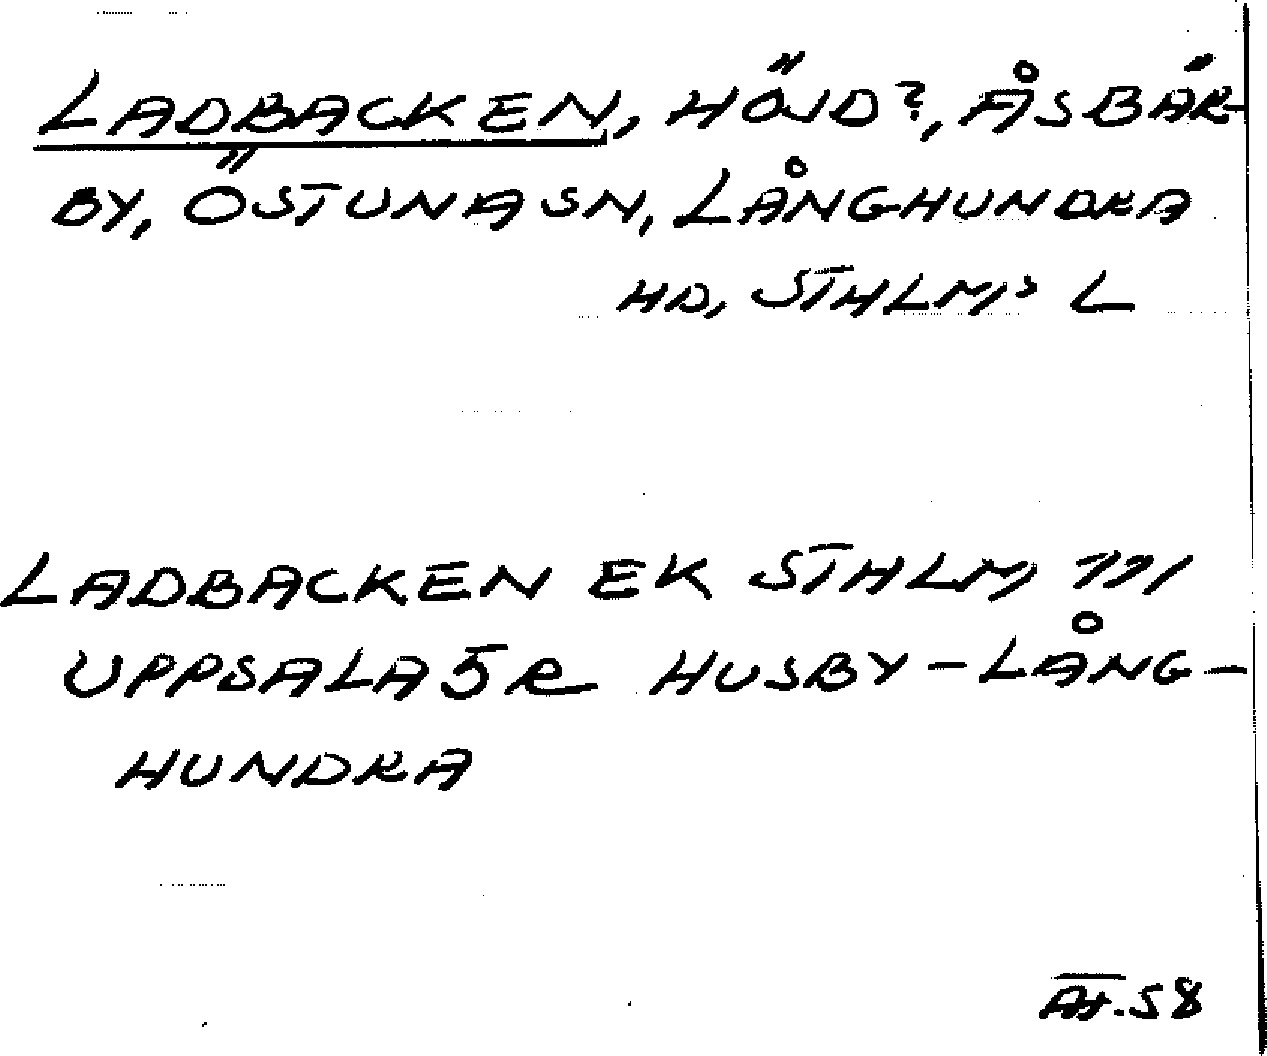 LADBACKEN, HÖJD?, ÅSBÄR-
BY, ÖSTUNA SN, LÅNGHUNDRA
HD, STHLMS L
LADBACKEN EK STHLM 771
UPPSALA 5R HUSBY-LÅNG-
HUNDRA
58